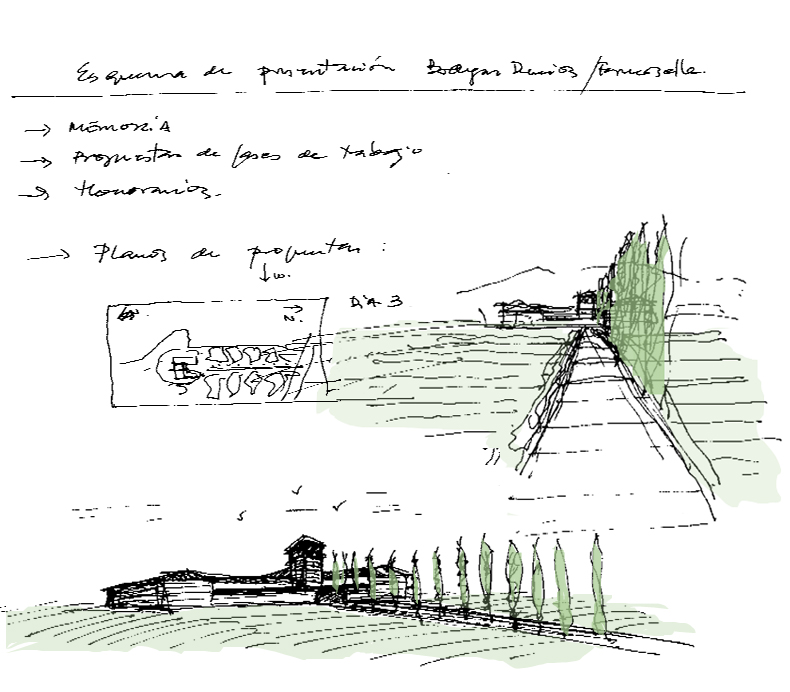 Esquema de presentación Bodegas Durius / Fermoselle.
→ MEMORIA
→ Propuestas de fases de trabajo
→ Honorarios.
→ Planos de propuesta :
↓ w.
DIA 3
N.